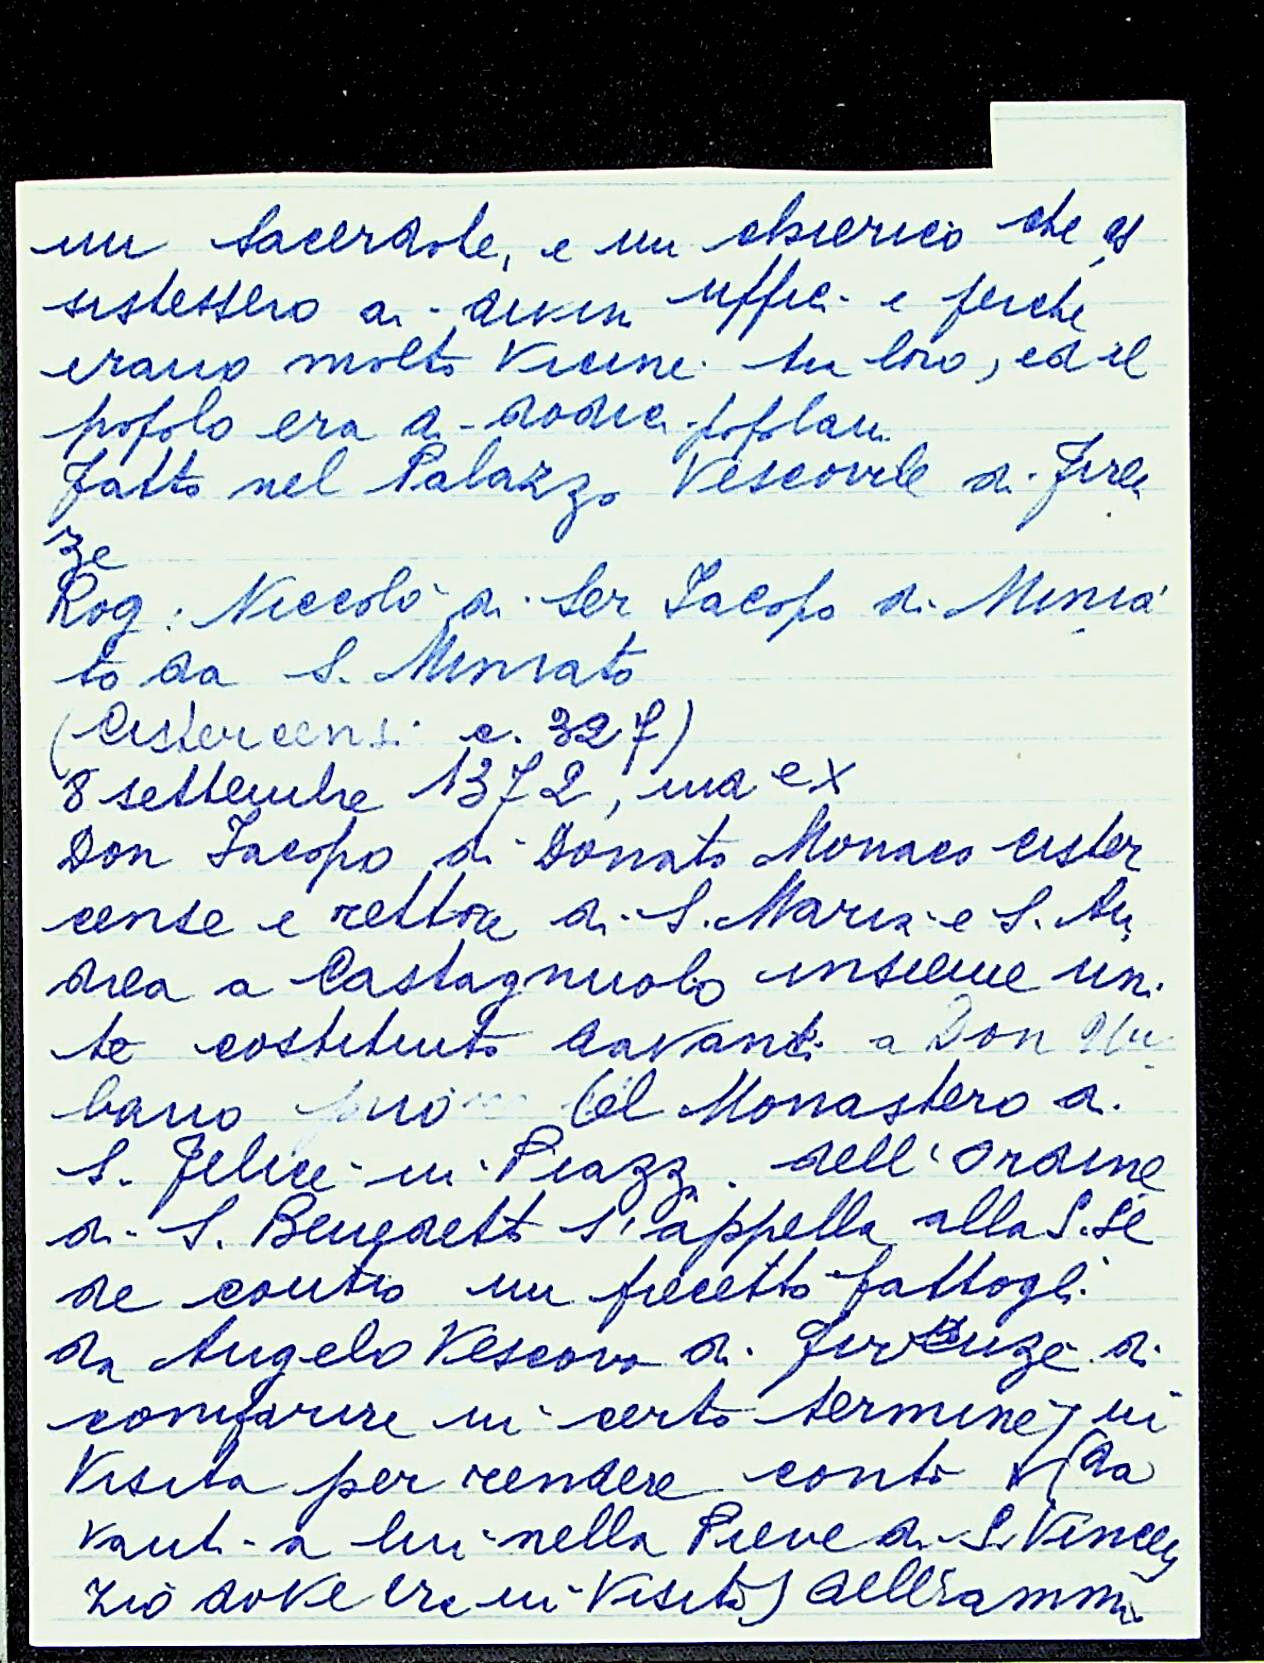 un Sacerdote, e un chierico che as
sistessero ai divin uffici e perche
erano molto vicine tra loro, ed il
popolo era di dodici popolani
fatto nel Palazzo Vescovile di Firen
ze
Rog: Niccolò di Ser Jacopo di Minia
to da S. Miniato
(Cistercensi c. 327)
8 settembre 1372, ind ex
Don Jacopo di Donato Monaco cister
cense e rettore di S. Maria e S. An
drea a Castagnuolo insieme uni
te costituito davanti a Don Ur
bano priore del Monastero di
S. Felice in Piazza dell'Ordine
di S. Benedetto s'appella alla S. Se
de contro un precetto fattogli
da Angelo Vescovo di Firenze di
comparire in certo termine, in
Visita per rendere conto (da
vanti a lui nella Pieve di S. Vincen
zio dove era in Visita) dell'ammi